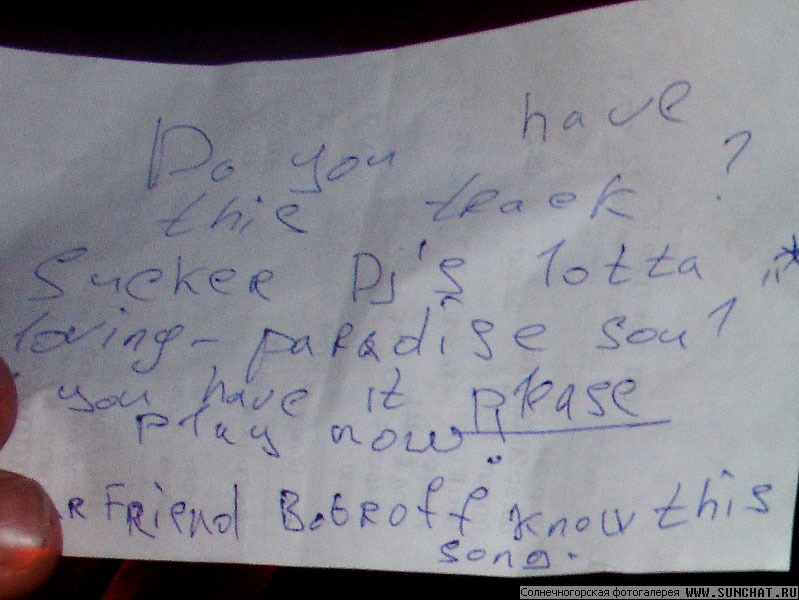 Do you have
this track ?
Sucker Dj's lotta
loving - paradise soul
you have it please
play now!
R FRiend BobRoff know this
song.
Солнечногорская фотогалерея WWW.SUNCHAT.RU